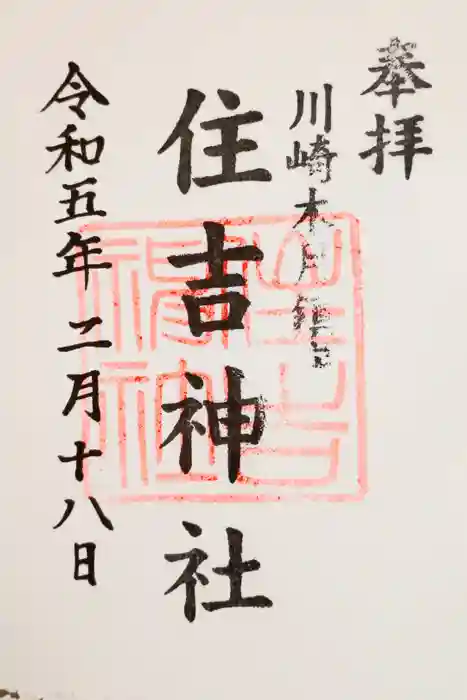 奉拝
川崎木月鎮台
住吉神社
令和五年二月十八日
住吉神社